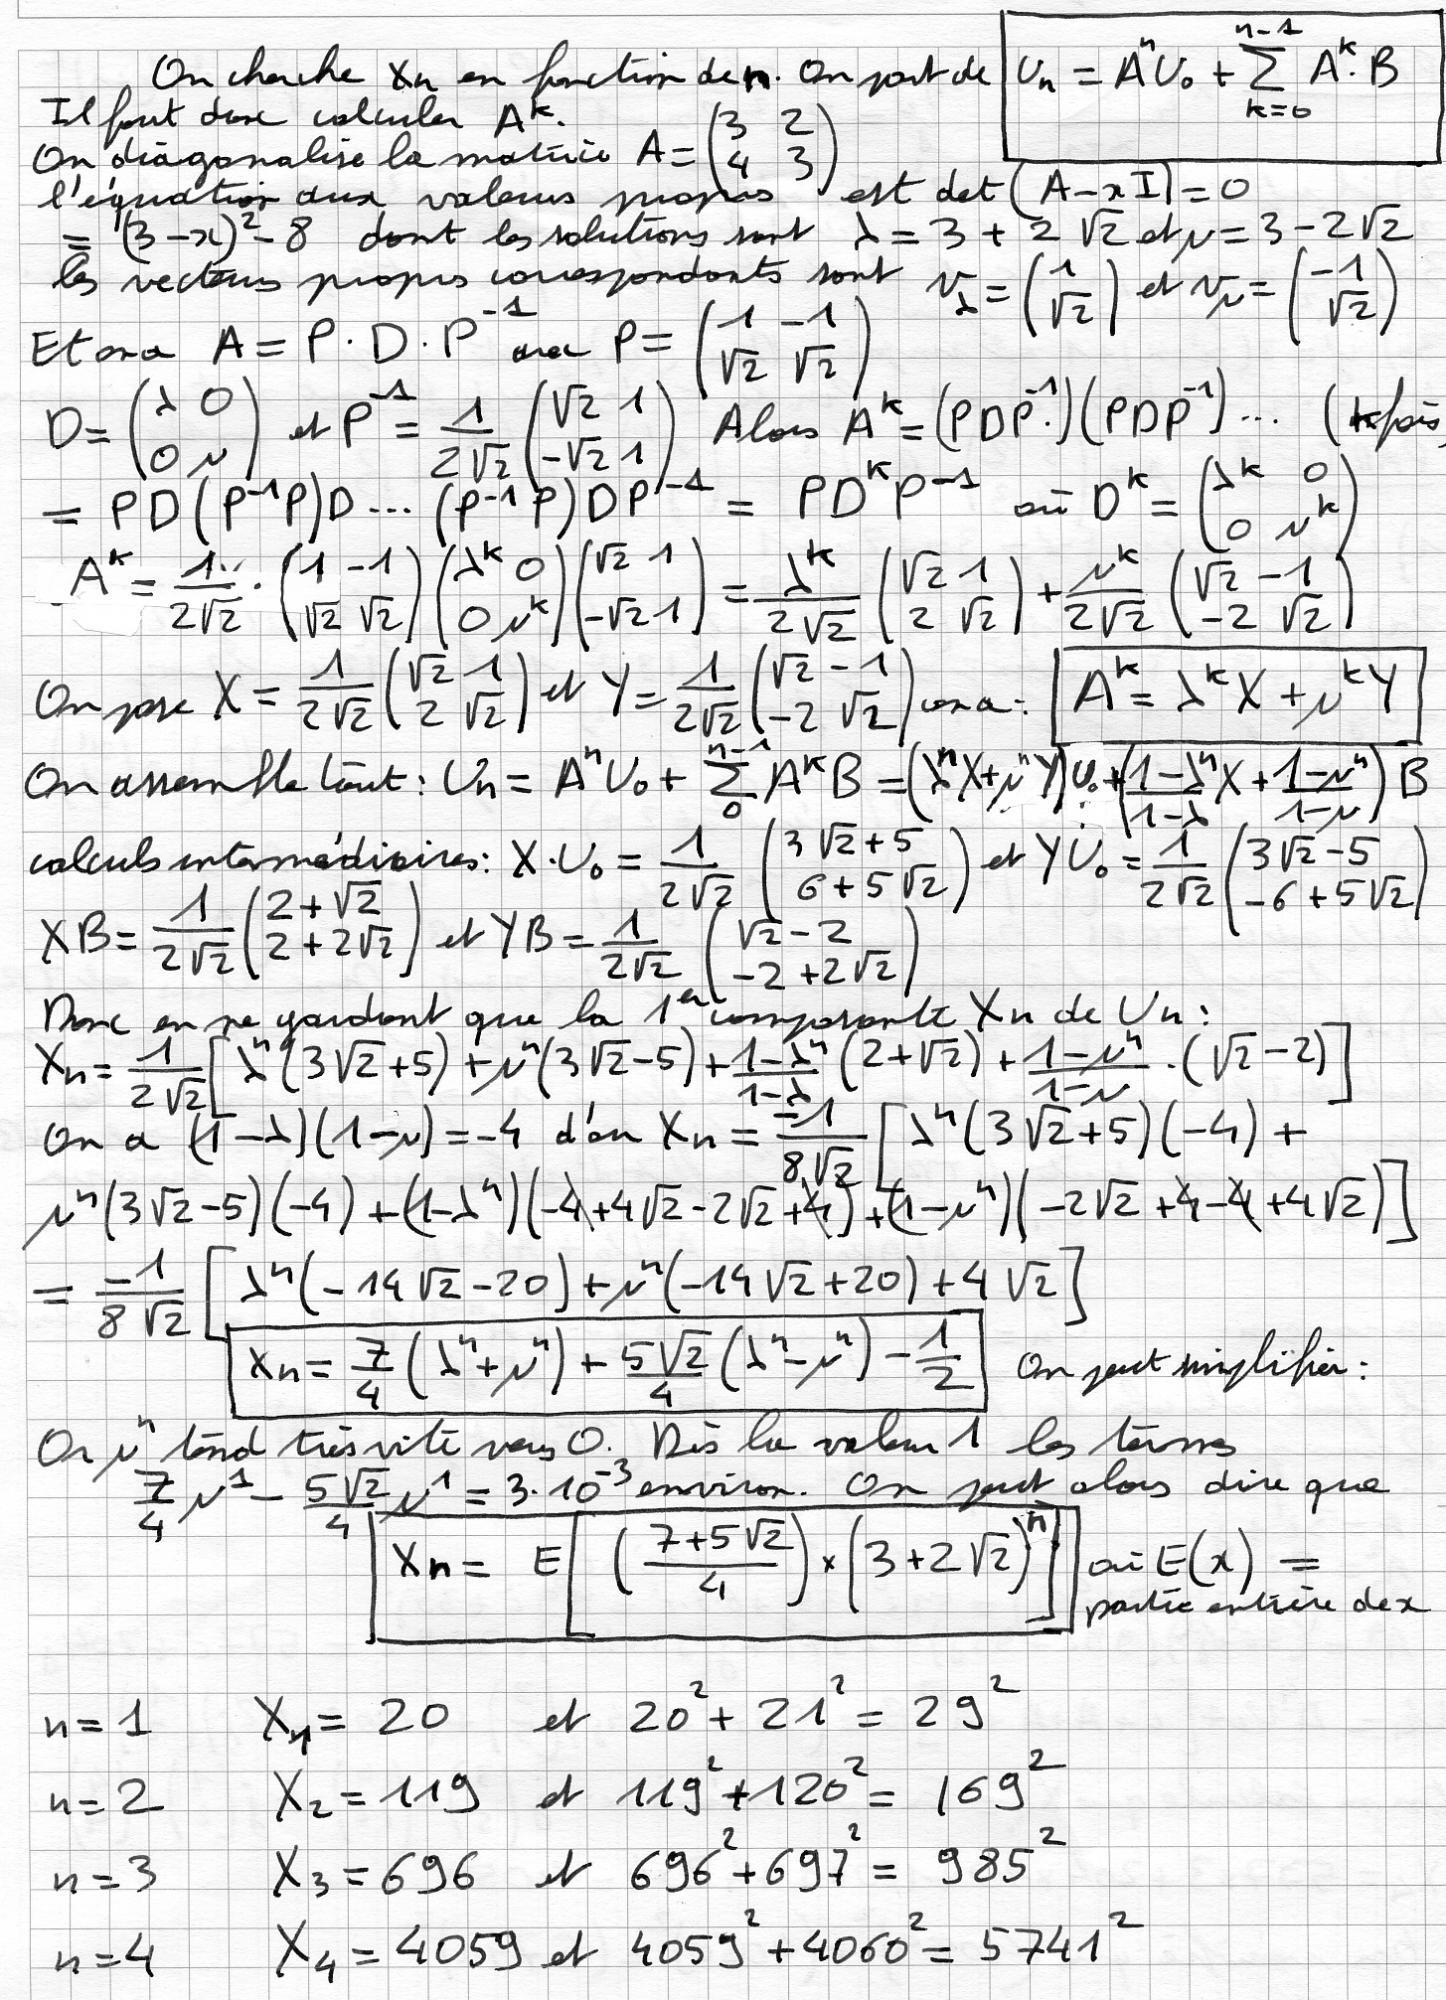 On cherche Xn en fonction de n. On part de Un = AⁿU₀ + ∑_{k=0}^{n-1} Aᵏ·B
Il faut donc calculer Aᵏ.
On diagonalise la matrice A = (3 2 / 4 3)
l'équation aux valeurs propres est det(A-xI) = 0
= (3-x)² - 8 dont les solutions sont λ = 3 + 2√2 et μ = 3 - 2√2
les vecteurs propres correspondants sont v_λ = (1 / √2) et v_μ = (-1 / √2)
Et on a A = P·D·P⁻¹ avec P = (1 -1 / √2 √2)
D = (λ 0 / 0 μ) et P⁻¹ = 1/(2√2) (√2 1 / -√2 1) Alors Aᵏ = (PDP⁻¹·)(PDP⁻¹)... (k fois)
= PD(P⁻¹P)D...(P⁻¹P)DP⁻¹ = PDᵏP⁻¹ où Dᵏ = (λᵏ 0 / 0 μᵏ)
Aᵏ = 1/(2√2) · (1 -1 / √2 √2)(λᵏ 0 / 0 μᵏ)(√2 1 / -√2 1) = λᵏ/(2√2) (√2 1 / 2 √2) + μᵏ/(2√2) (√2 -1 / -2 √2)
On pose X = 1/(2√2) (√2 1 / 2 √2) et Y = 1/(2√2) (√2 -1 / -2 √2) on a : Aᵏ = λᵏX + μᵏY
On assemble tout : Un = AⁿU₀ + ∑_{0}^{n-1} AᵏB = (λⁿX + μⁿY)U₀ + ((1-λⁿ)/(1-λ) X + (1-μⁿ)/(1-μ)) B
calculs intermédiaires : X·U₀ = 1/(2√2) (3√2+5 / 6+5√2) et YU₀ = 1/(2√2) (3√2-5 / -6+5√2)
XB = 1/(2√2) (2+√2 / 2+2√2) et YB = 1/(2√2) (√2-2 / -2+2√2)
Donc en ne gardant que la 1er composante Xn de Un :
Xn = 1/(2√2) [λⁿ(3√2+5) + μⁿ(3√2-5) + (1-λⁿ)/(1-λ) (2+√2) + (1-μⁿ)/(1-μ) · (√2-2)]
On a (1-λ)(1-μ) = -4 d'où Xn = -1/(8√2) [λⁿ(3√2+5)(-4) +
μⁿ(3√2-5)(-4) + (1-λⁿ)(-4+4√2-2√2+4) + (1-μⁿ)(-2√2+4-4+4√2)]
= -1/(8√2) [λⁿ(-14√2-20) + μⁿ(-14√2+20) + 4√2]
Xn = 7/4 (λⁿ+μⁿ) + 5√2/4 (λⁿ-μⁿ) - 1/2 On peut simplifier :
Or μⁿ tend très vite vers 0. Dès la valeur 1 les termes
7/4 μ¹ - 5√2/4 μ¹ = 3·10⁻³ environ. On peut alors dire que
Xn = E[((7+5√2)/4) × (3+2√2)ⁿ] où E(x) =
partie entière de x
n=1 X₁ = 20 et 20² + 21² = 29²
n=2 X₂ = 119 et 119² + 120² = 169²
n=3 X₃ = 696 et 696² + 697² = 985²
n=4 X₄ = 4059 et 4059² + 4060² = 5741²